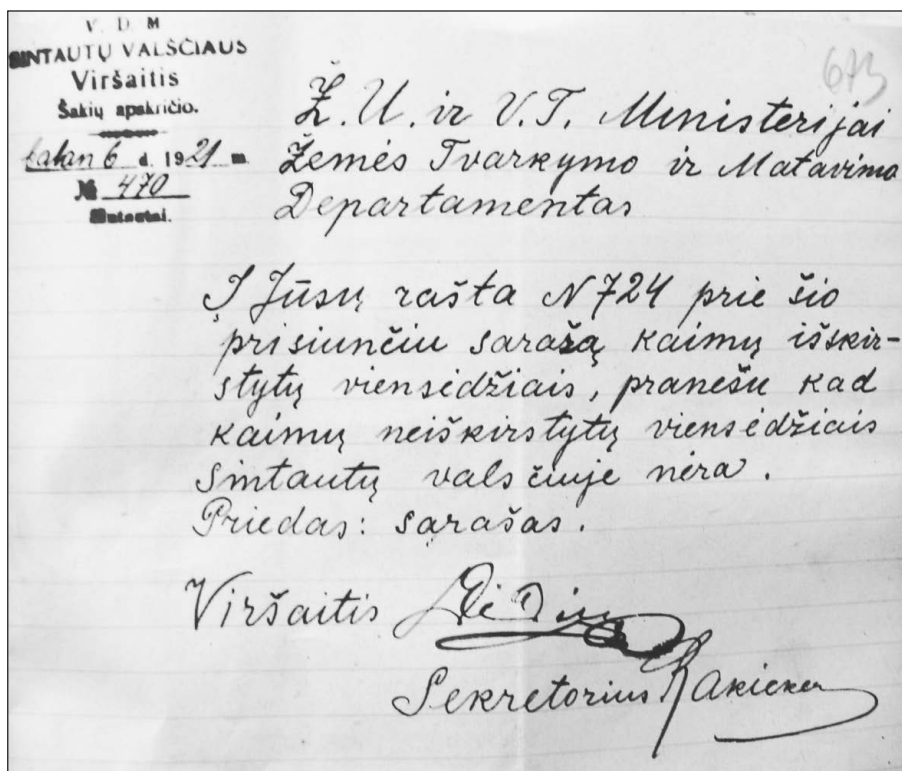 V. D. M
SINTAUTŲ VALSČIAUS
Viršaitis
Šakių apskričio.
6 d. 1921 m.
№ 470
Sintautai.
673
Ž. U. ir V. T. Ministerijai
Žemės Tvarkymo ir Matavimo
Departamentas
Į Jūsų rašta N 724 prie šio
prisiunčiu sarašą kaimų išskir-
stytų viensėdžiais, pranešu kad
kaimų neiškirstytų viensėdžiais
Sintautų valsčiuje nėra.
Priedas: sarašas.
Viršaitis
Sekretorius